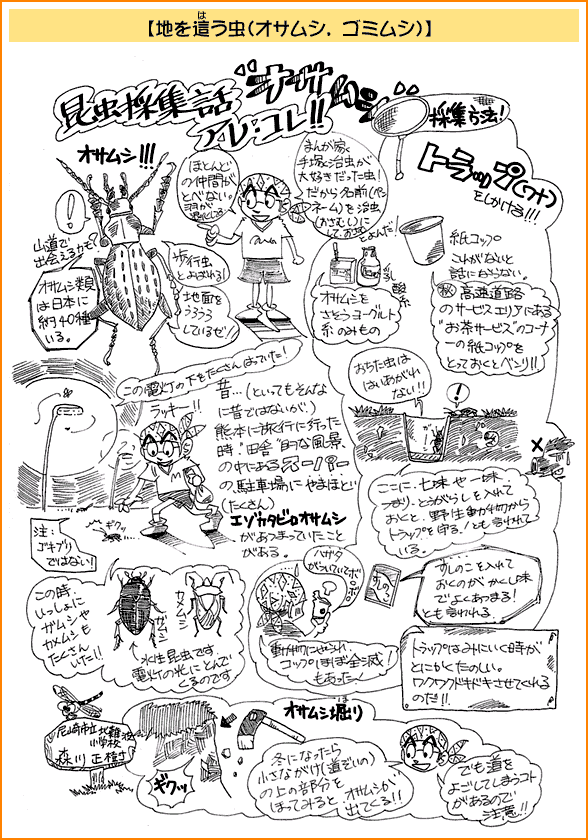 【地を這う虫(オサムシ．ゴミムシ)】
は
昆虫採集話
アレ・コレ!!
オサムシ!!!
採集方法!
トラップ(ワナ)
をしかける!!!
ほとんど
の仲間が
とべない。
羽が
まんが家、
手塚治虫が
大好きだった虫!
だから名前(ペン
ネーム)を治虫
(おさむし)に
山道で
出会えるカモ?
歩行虫
とよばれる!
地面を
うろうろ
しているゼ!
オサムシ類
は日本に
約40種
いる。
オサムシを
さそうヨーグルト
系のみもの
紙コップ。
これがないと
話にならない。
㊙高速道路
のサービスエリアにある
"お茶サービス"のコーナ
ーの紙コップを
とっておくとベンリ!!
この電灯の下をたくさんはっていた!
ラッキー!!
昔…(といってもそんな
に昔ではないが、)
熊本に旅行に行った
時、"田舎"的な風景
の中にあるスーパー
の駐車場にやまほど
(たくさん)
エゾカタビロオサムシ
があつまっていたこと
がある。
おちた虫は
はいあがれ
ない!!
ここに、七味や一味、
つまり、とうがらしを入れて
おくと、野生動物から
トラップを守る!とも言われて
いる。
ギクッ
注:
ゴキブリ
ではない!
この時、
いっしょに
ガムシや
カメムシも
たくさん
いた!!
カメムシ
ガムシ
水性昆虫です。
電灯の光にとんで
くるのです
すしのこ
すしのこを入れて
おくのがかくし味
でよくあつまる!
とも言われる。
動物にやられ、
コップはほぼ全滅!
もあった～
トラップはみにいく時が
とにかくたのしい。
ワクワクドキドキさせてくれる
のだ!!
オサムシ堀り
ほ
尼崎市立北難波
小学校
森川 正樹
ギクッ
冬になったら
小さながけ(道ぞいの)
の上の部分を
ほってみると、オサムシが
出てくる!!
でも道を
よごしてしまうコト
があるので
注意!!